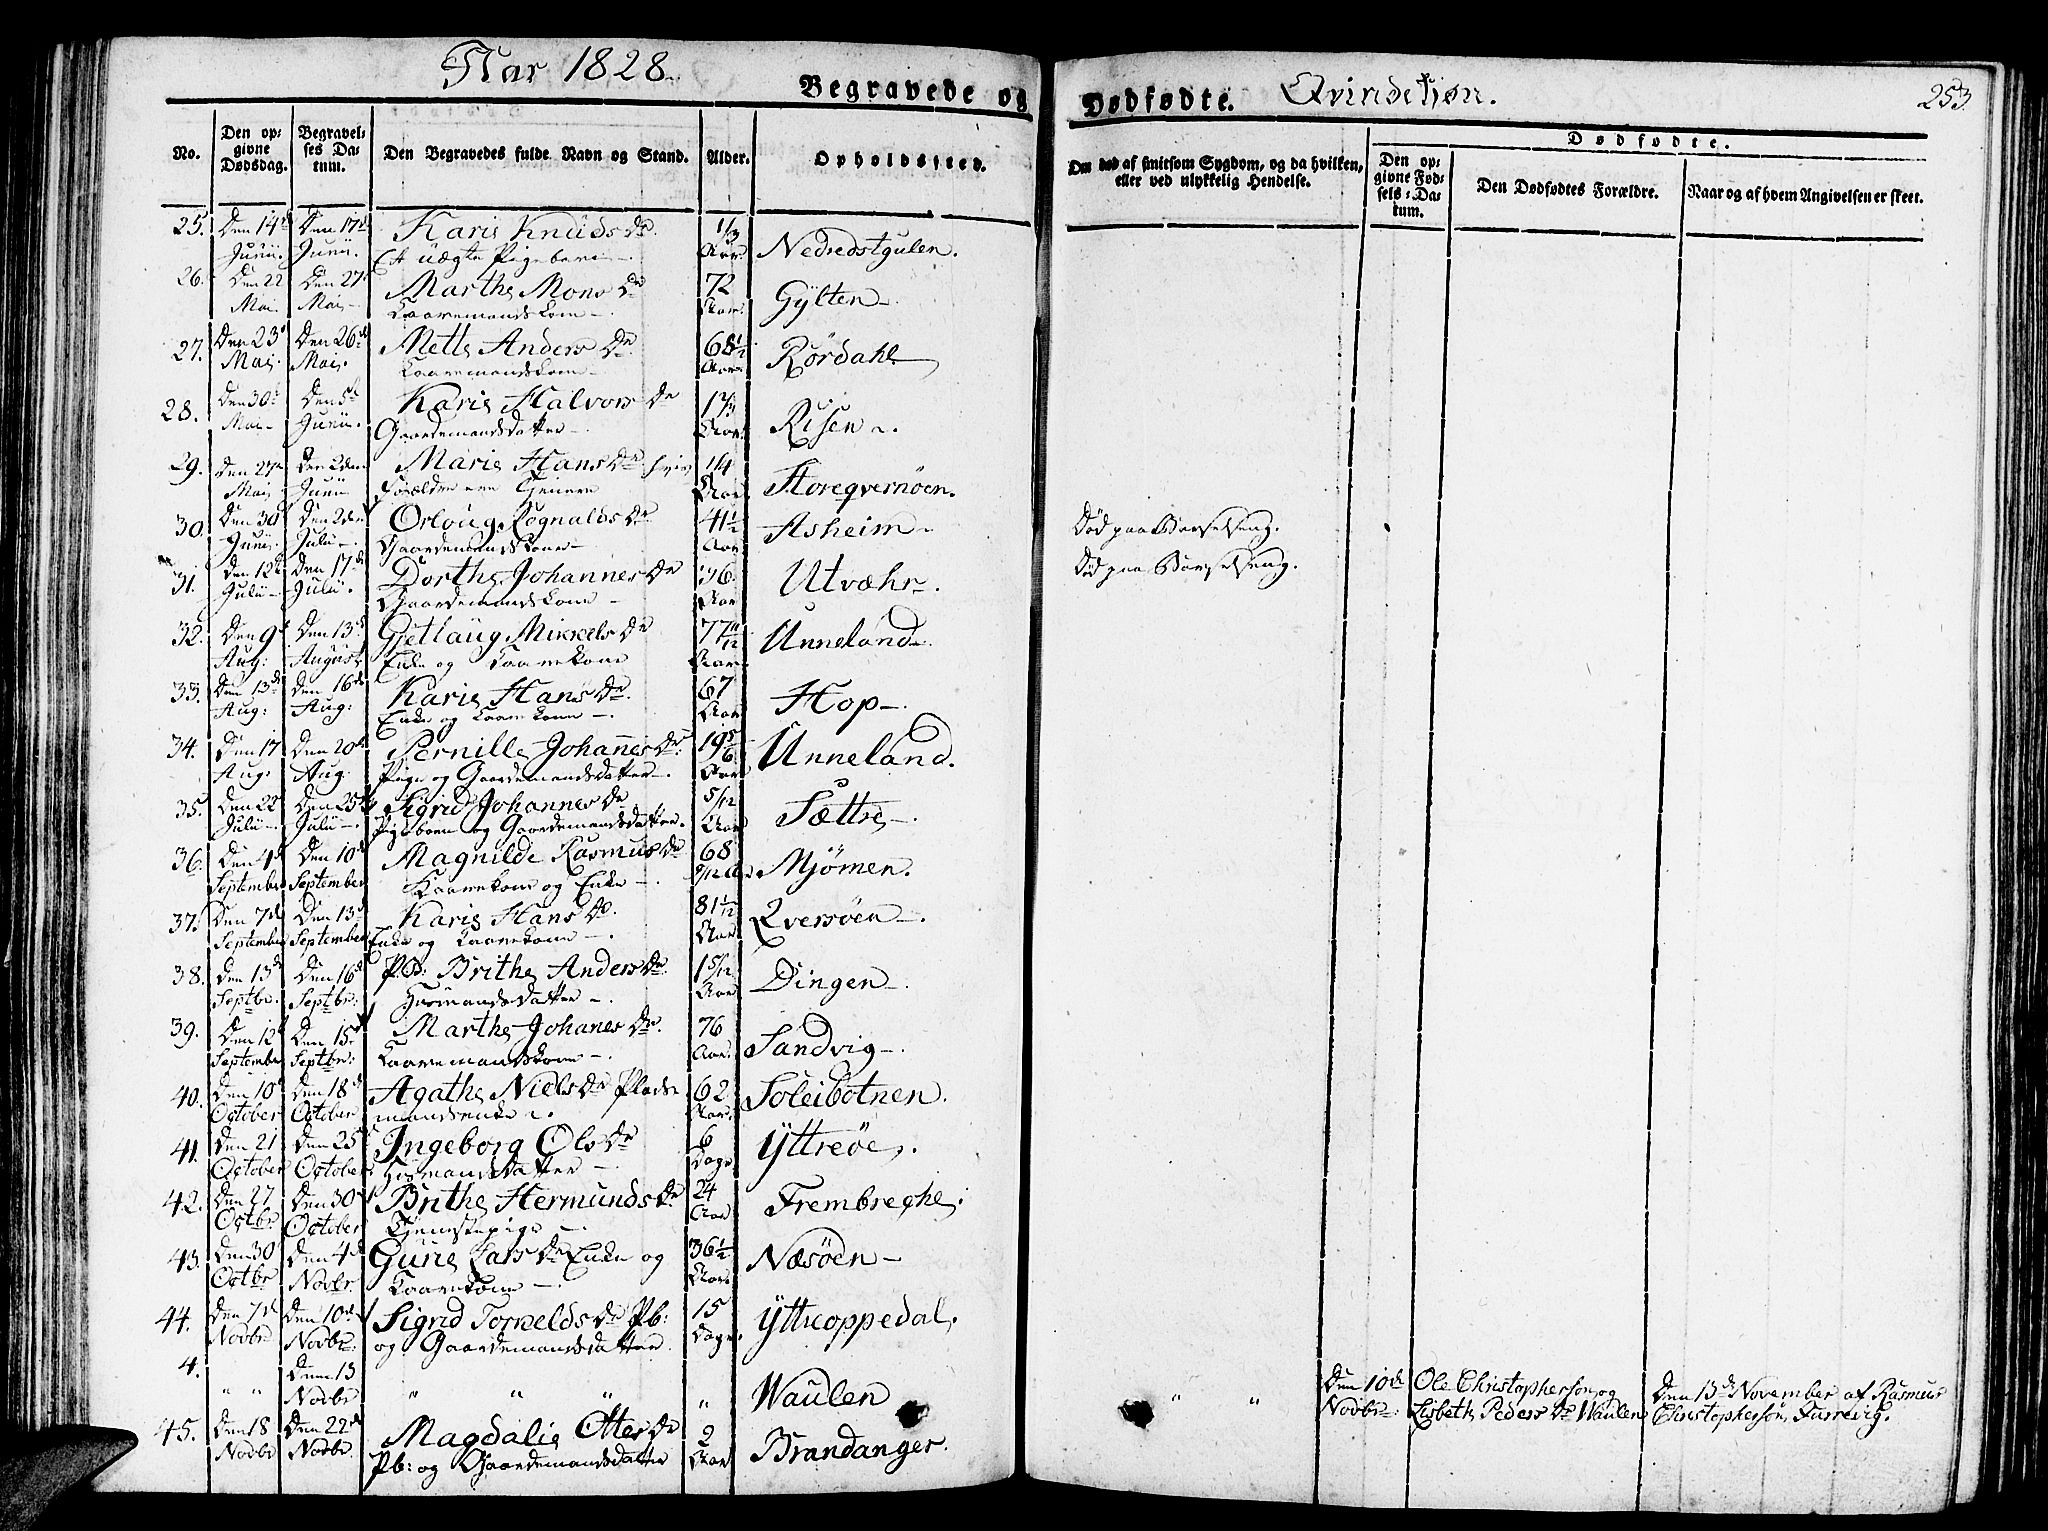 Aar 1828. Begravede og Dødfødte. Qvindekjøn. 253
No. Den opgivne Dødsdag. Begravelses Datum. Den Begravedes fulde Navn og Stand. Alder. Opholdssted. Om død af smitsom Sygdom, og da hvilken, eller ved ulykkelig Hendelse. Dødfødte. Den opgivne Fødsels-Datum. Den Dødfødtes Forældre. Naar og af hvem Angivelsen er skeet.
25. Den 14de Den 17de Karie Knuds Dr. 1/3 Nedrestgulen.
Junii. Junii. Et uægte Pigebarn Aar.
26. Den 22 Den 27 Marthe Mons Dr 72 Gylten
Mai Mai Kaaremandskone Aar.
27. Den 23 Den 26de Mette Anders Dr. 68 1/2 Rørdahl
Mai. Mai. Kaaremandskone Aar
28. Den 30 Den 5te Karie Halvors Dr Risen
Mai Junii. Gaardemandsdatter Aar.
29. Den 2den Marie Hans Dr 1/4 Storeqvernøen.
Mai Junii Forældre ere Tjenere Aar
30. Den 30 Den 2den Orloug Rognalds Dr 41 1/2 Asheim Død paa Barselseng.
Junii. Julii Gaardemandskone Aar
31. Den 12te Den 17de Dorthe Johannes Dr 36 Utvæhr. Død paa Barselseng.
Julii Julii. Gaardemandskone Aar
32. Den 9de Den 13de Gjetlaug Mikkels Dr 77 Unneland
Aug: August Enke og Kaarekone Aar
33. Den 13de Den 16de Karie Hans Dr. 67 Hop
Aug: Aug: Enke og Kaarekone Aar
34. Den 17 Den 20de Pernille Johannes Dr. 19 5/6 Unneland.
Aug: Aug. Pige og Gaardemandsdatter Aar
35. Den 22 Den 25 Sigrid Johannes Dr 5/12 Sættre
Julii Julii Pigebarn og Gaardemandsdatter. Aar
36. Den 4de Den 10de Magnilde Rasmus Dr 68 Mjømen.
September September Kaarekone og Enke
37. Den 7de Den 13de Karie Hans Dr. 81 Qversøen
September September Enke og Kaarekone Aar
38. Den 13de Den 16de P.B: Brithe Anders Dr 1 5/12 Dingen
Septbr. Septbr: Huusmandsdatter Aar
39. Den 12te Den 15de Marthe Johanes Dr. 76 Sandvig
September Septbr: Kaaremandskone Aar.
40. Den 10de Den 18de Agathe Niels Dr Plads 62 Soleibotnen.
October October mandsenke Aar.
41. Den 21 Den 25 Ingeborg Ols Dr 6 Yttreøe.
October October Huusmandsdatter Dage
42. Den 27 Den 30 Brithe Hermunds Dr 24 Frembreche.
Octbr October Tjenestepige Aar
43. Den 30 Den 4de Gurie Lars Dr Enke og 36 1/2 Næsøen
Octbr Novbr Kaarekone Aar
44. Den 7de Den 10de Sigrid Dr Pb: 15 Yttreoppedal.
Novbr Novbr. og Gaardemandsdatter Dage.
4. " " Den 13 " " " " Waulen " " Den 10de Ole Christopherson og Den 13de November af Rasmus
Novbr Novbr. Lisbeth Peders Dr Waulen Christopherson Furrevig.
45. Den 18 Den 22de Magdalie Otters Dr 2 Brandanger.
Novbr Novbr. Pb: og Gaardemandsdatter Aar